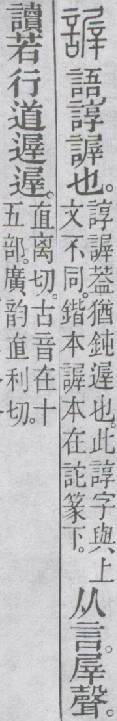 謘語諄謘也。
諄謘葢猶鈍遟也。此諄字與上
文不同。鍇本謘本在詑篆下。
从言。屖聲。
讀若行道遟遟。
直离切。古音在十
五部。廣韵直利切。